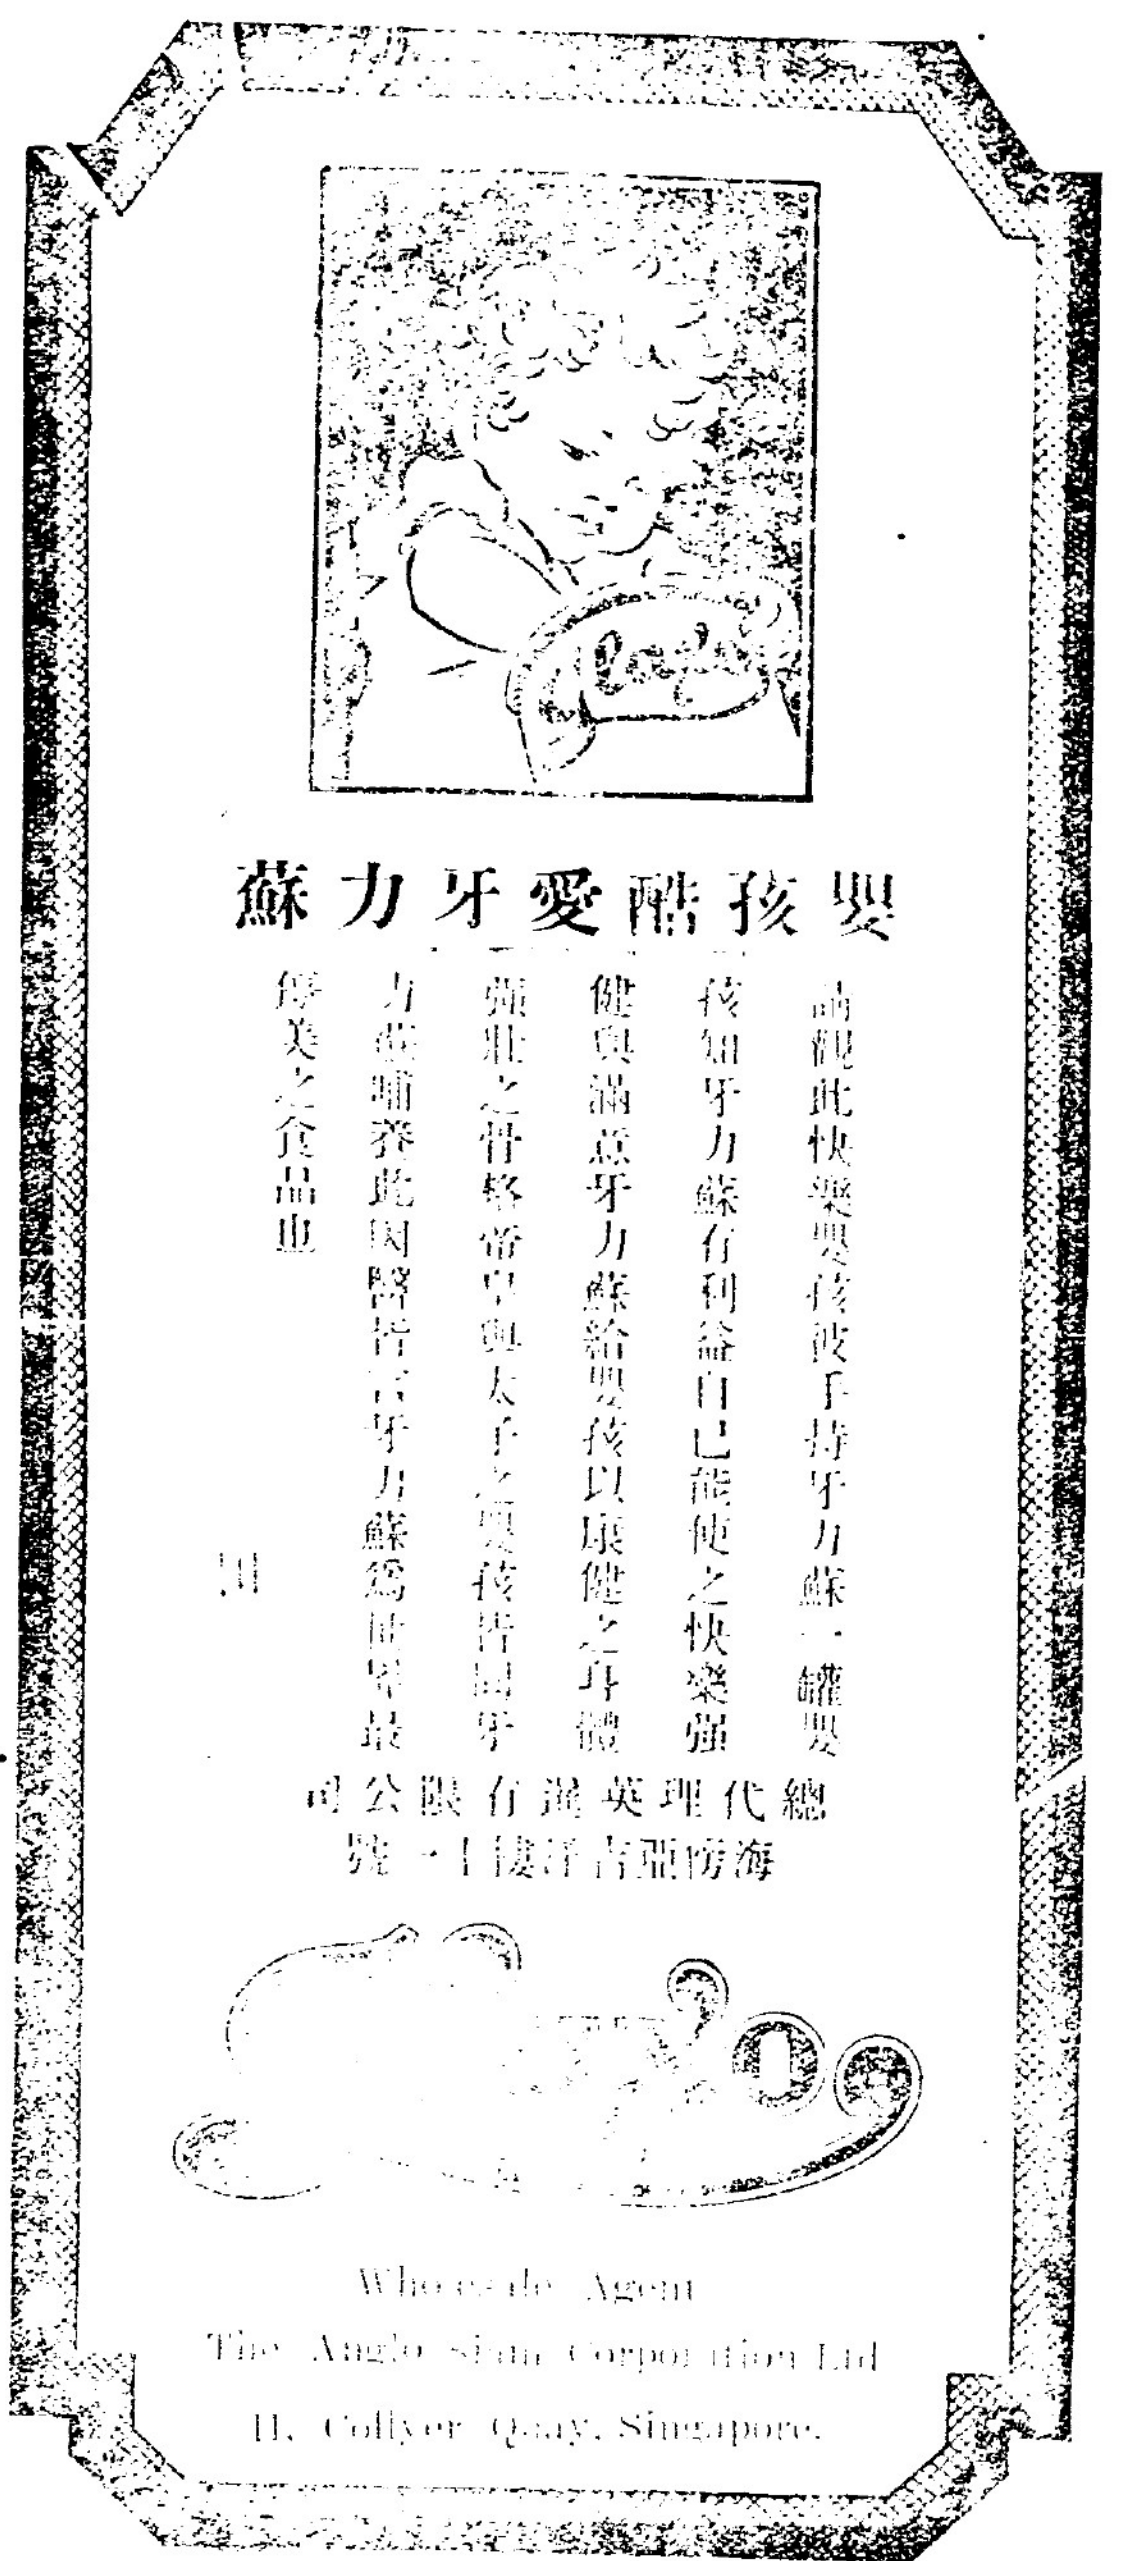 嬰孩酷愛牙力蘇
請觀此快樂嬰孩彼手持牙力蘇一罐嬰
孩知牙力蘇有利益自己能使之快樂強
健與滿意牙力蘇給嬰孩以康健之身體
強壯之骨格帝皇與太子之嬰孩皆同牙
力蘇哺養此因醫皆言牙力蘇為世界最
優美之食品也
總代理英暹有限公司
海傍亞吉洋樓十一號
Wholesale Agent
The Anglo Siam Corporation Ltd
11, Collyer Quay, Singapore.